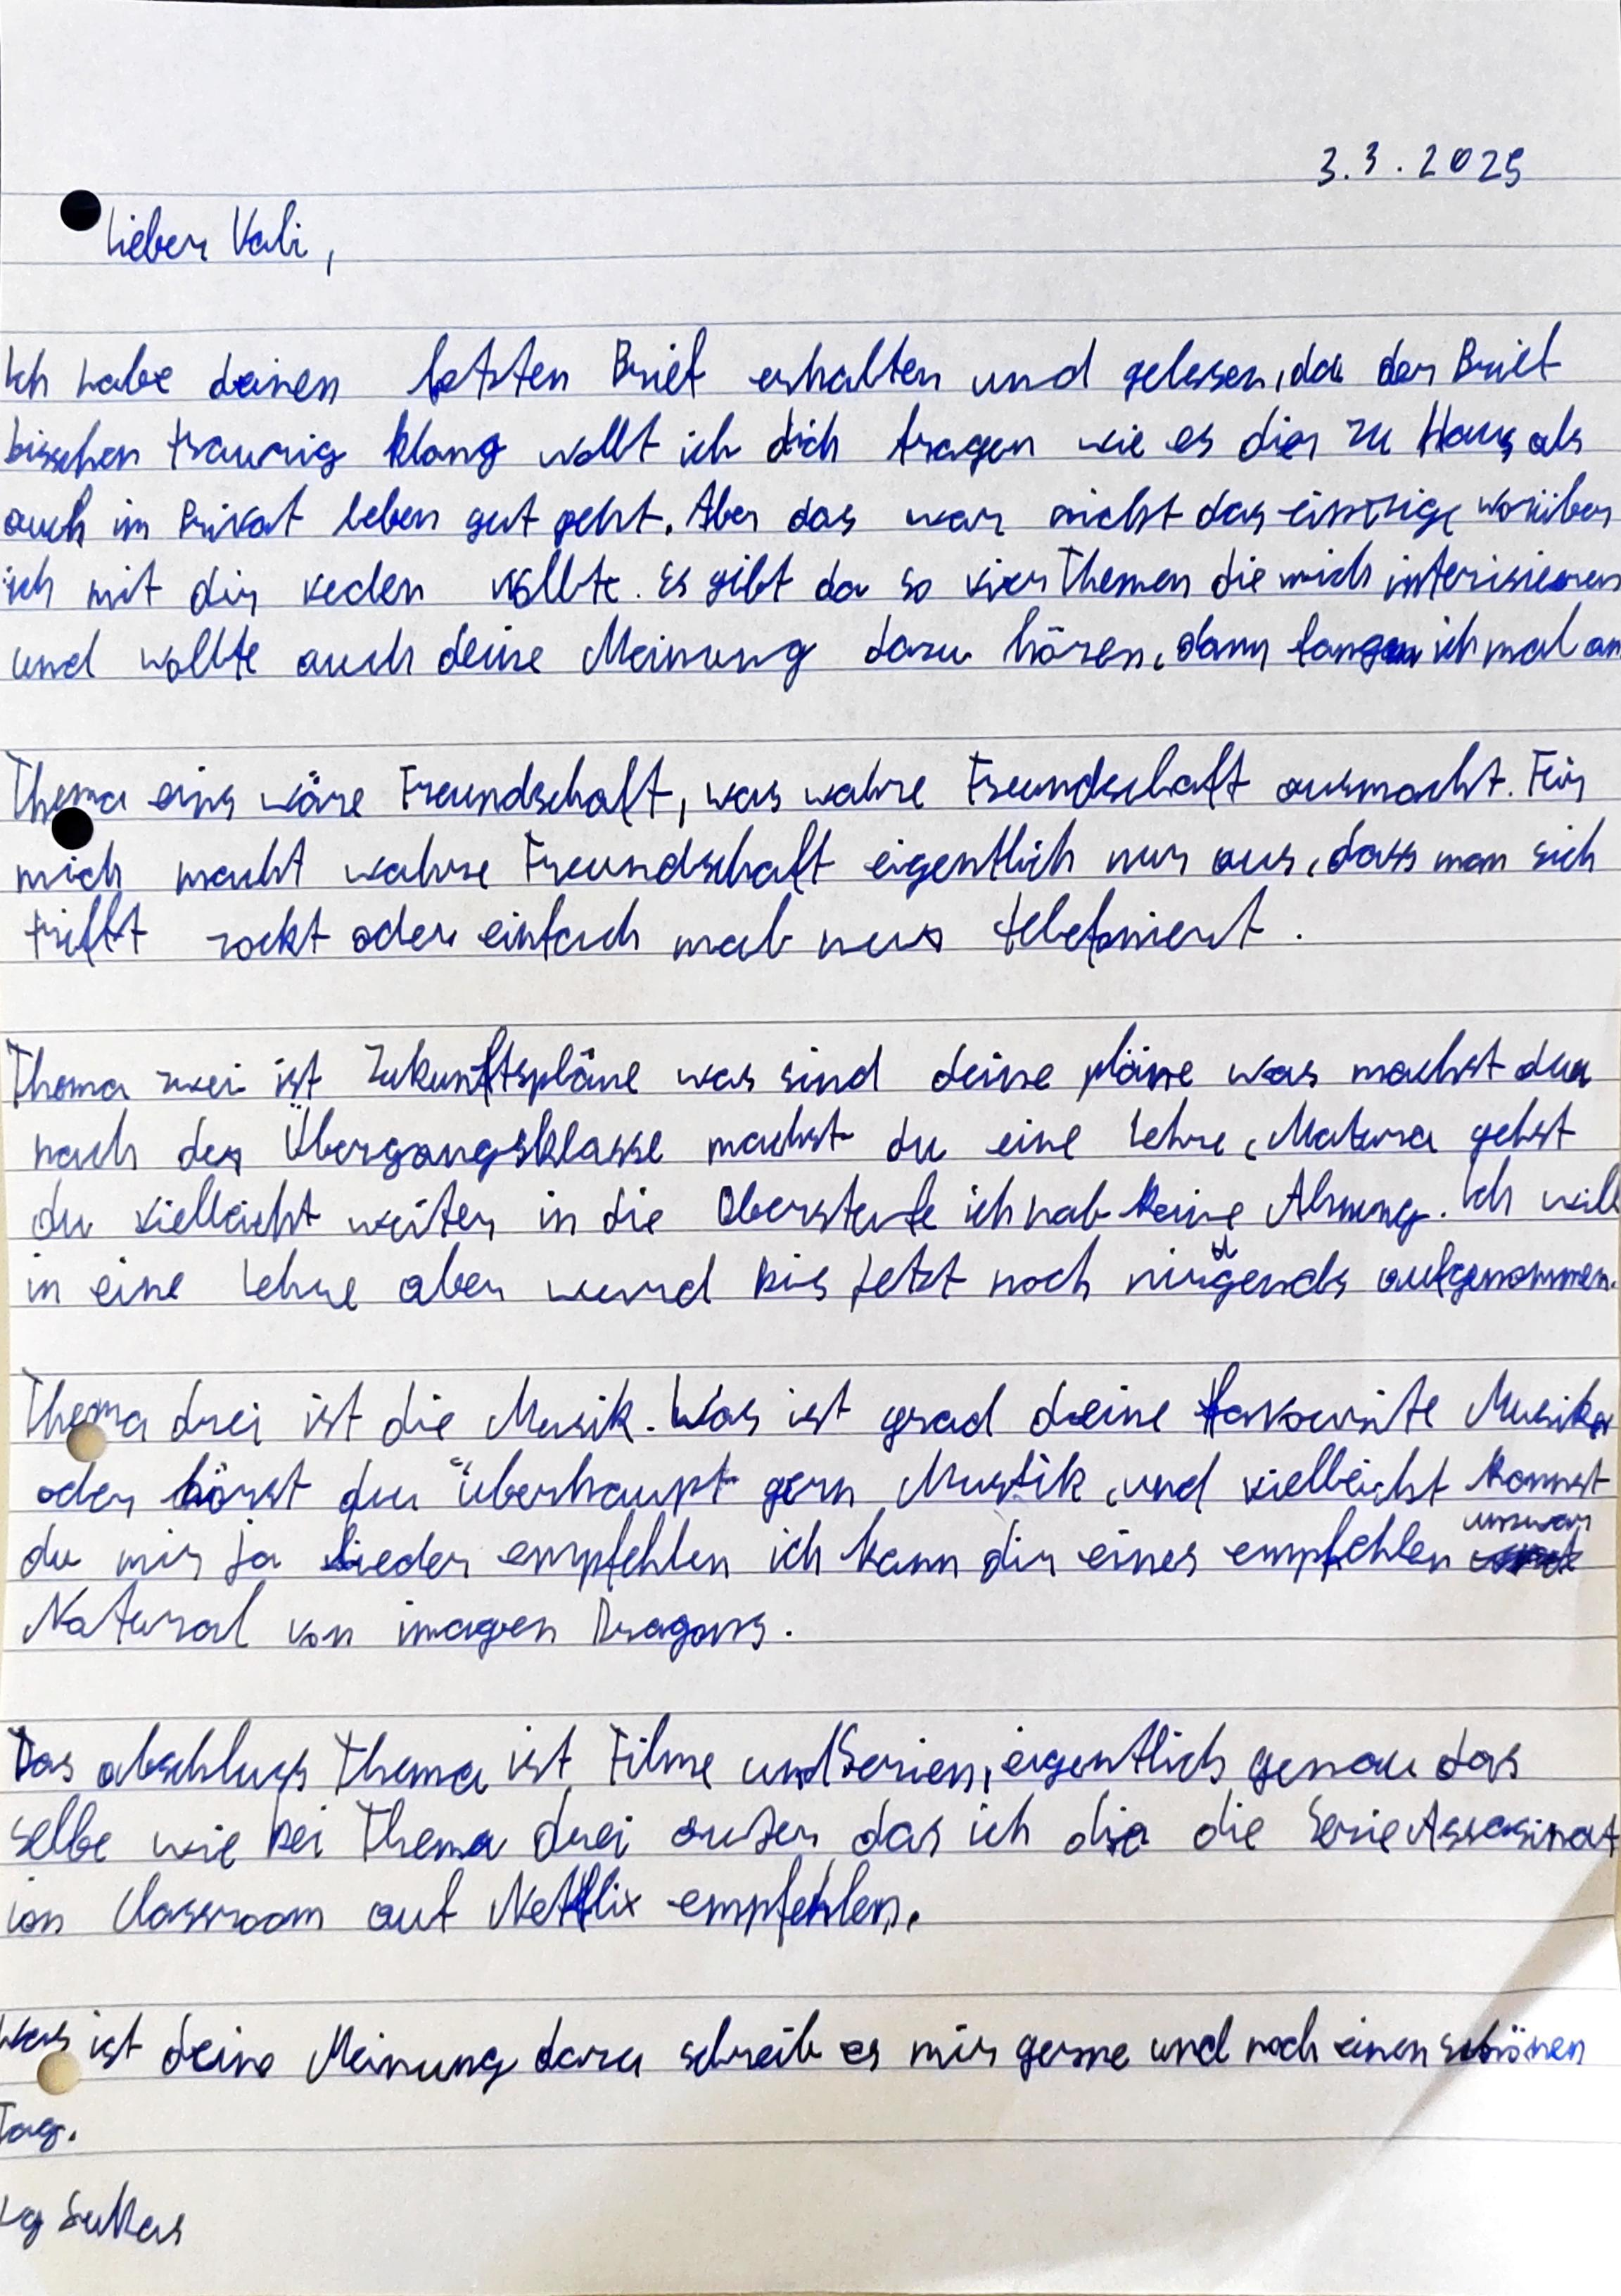 3.3.2025
Lieber Vali,
Ich habe deinen letzten Brief erhalten und gelesen, da der Brief
bisschen traurig klang wollt ich dich fragen wie es dir zu Haus als
auch im Privat leben gut geht. Aber das war nicht das einzige worüber
ich mit dir reden wollte. Es gibt da so vier Themen die mich interisieren
und wollte auch deine Meinung dazu hören, dann fang ich mal an
Thema eins wäre Freundschaft, was wahre Freundschaft ausmacht. Für
mich macht wahre Freundschaft eigentlich nur aus, dass man sich
trifft zockt oder einfach mal nur telefoniert.
Thema zwei ist Zukunftspläne was sind deine pläne was machst du
nach der Übergangsklasse machst du eine Lehre, Matura gehst
du vielleicht weiter in die Oberstufe ich hab keine Ahnung. Ich will
in eine Lehre aber wurd bis jetzt noch nirgends aufgenommen.
Thema drei ist die Musik. Was ist grad deine favourite Musik
oder hörst du überhaupt gern Musik, und vielleicht kannst
du mir ja Lieder empfehlen ich kann dir eines empfehlen umzwar
Natural von imagen Dragons.
Das abschluss Thema ist Filme und Serien, eigentlich genau das
selbe wie bei Thema drei außer das ich dir die Serie Assasinat
ion Classroom auf Netflix empfehlen.
Was ist deine Meinung dazu schreib es mir gerne und noch einen schönen
Tag.
Lg Lukas